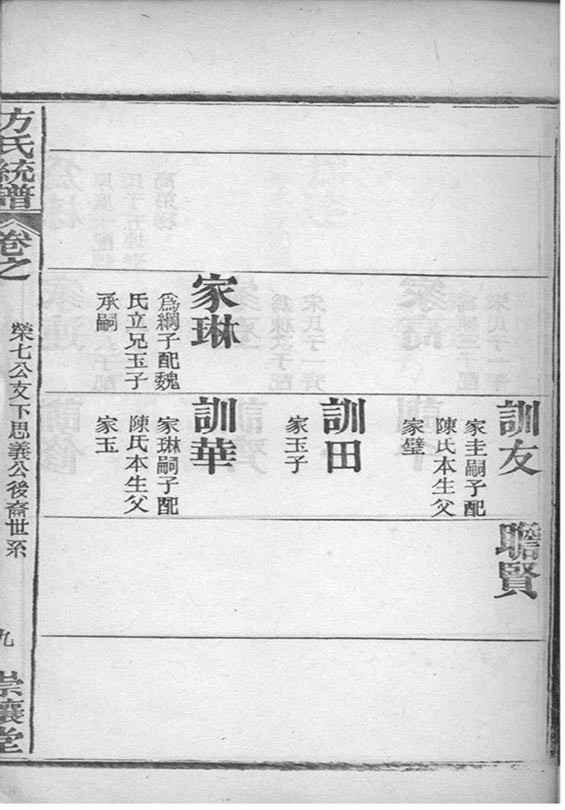 訓友
家圭嗣子配
陳氏本生父
家璧
瞻賢
訓田
家玉子
家琳
爲綱子配魏
氏立兄玉子
承嗣
訓華
家琳嗣子配
陳氏本生父
家玉
方氏統譜
卷之
榮七公支下思義公後裔世系
九
崇讓堂